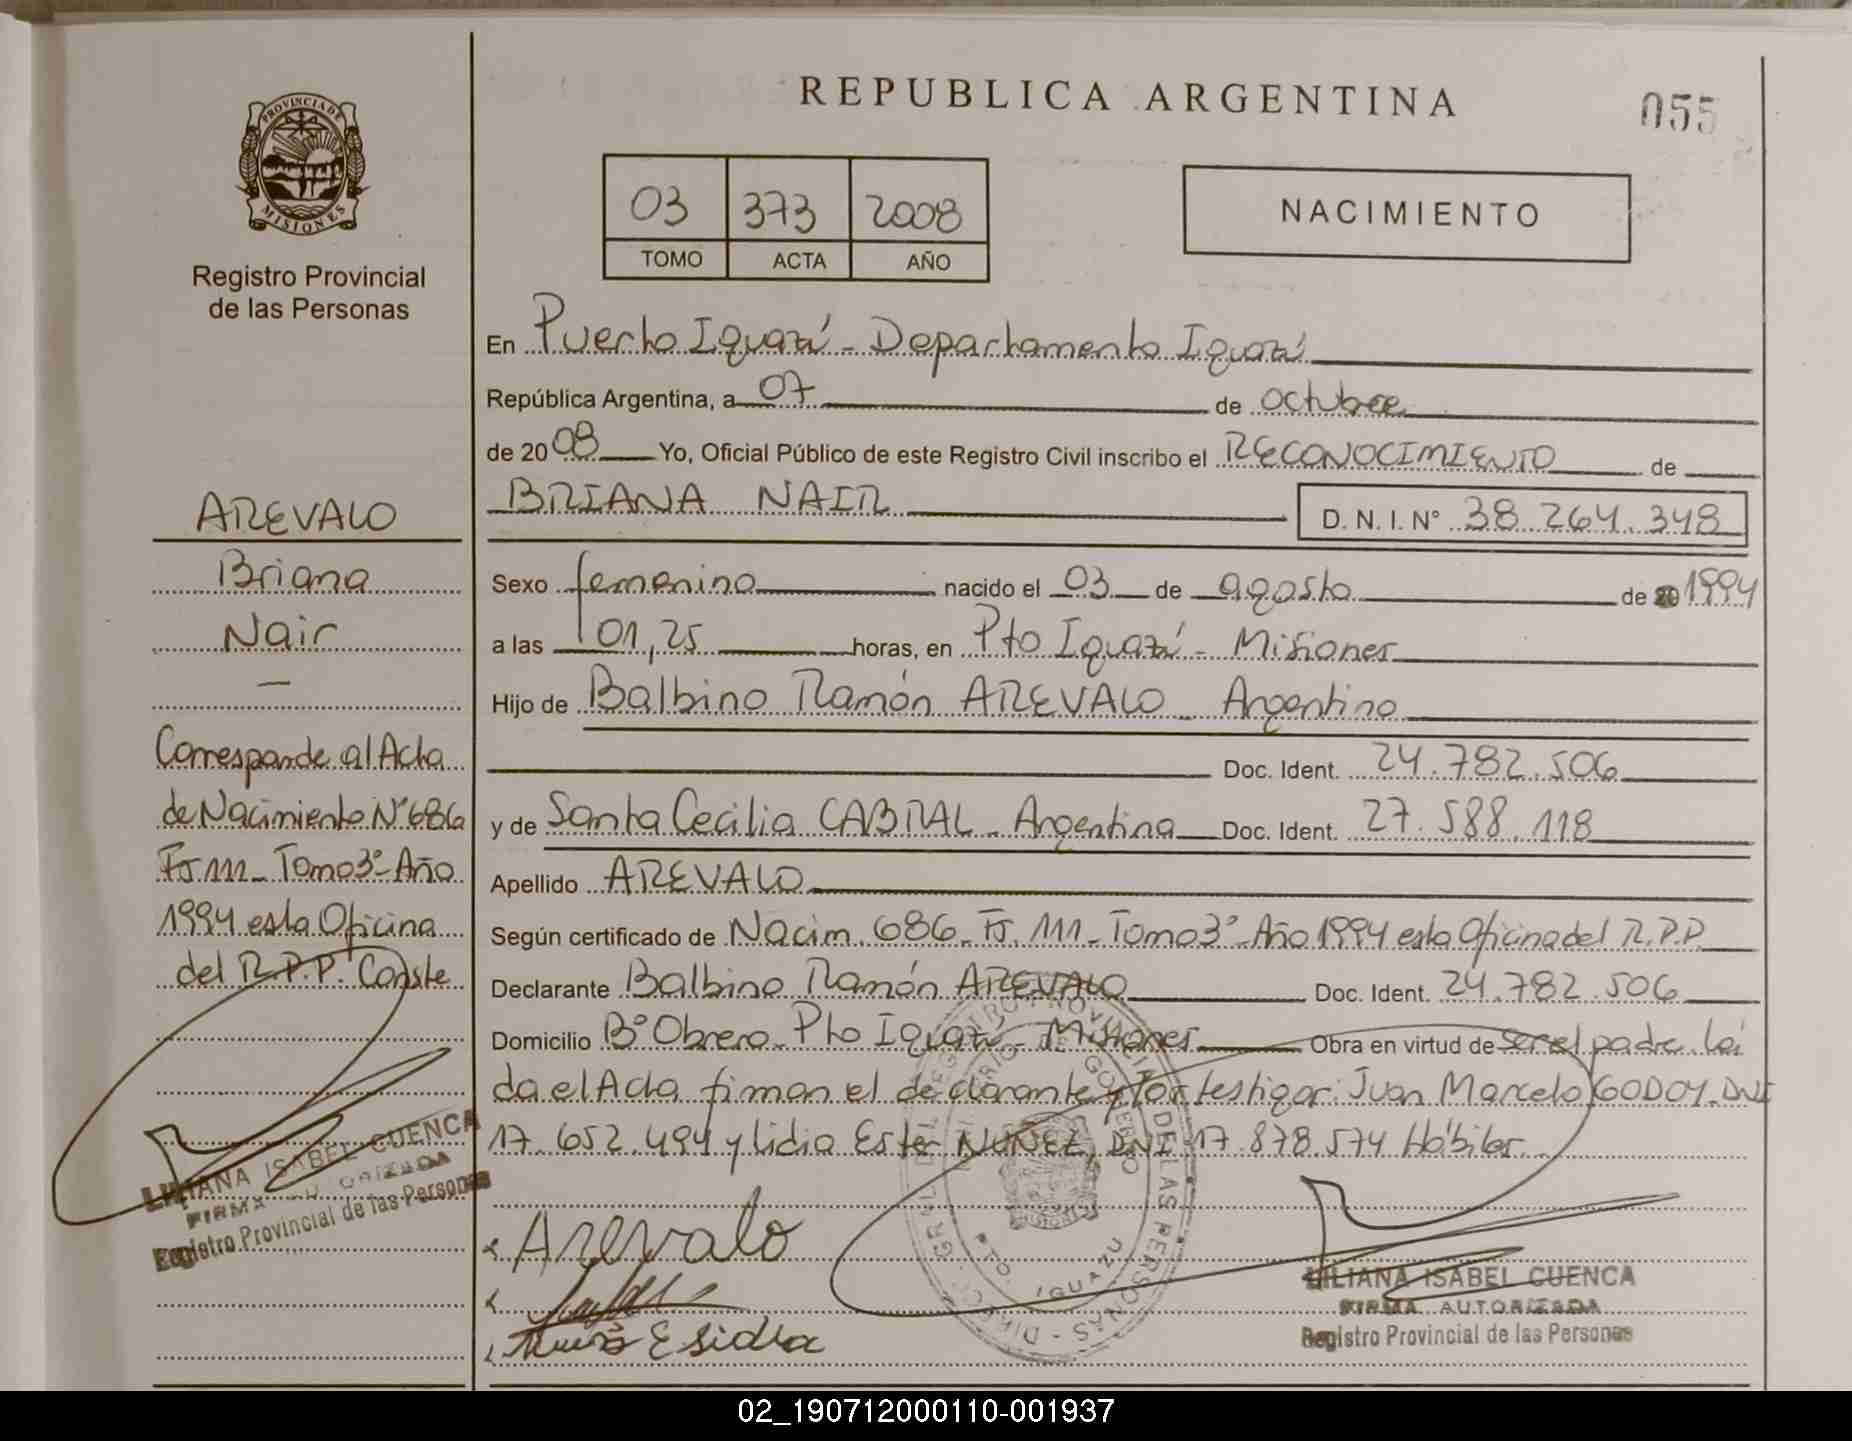 REPUBLICA ARGENTINA
055
PROVINCIA DE
MISIONES
Registro Provincial
de las Personas
03 373 2008
TOMO ACTA AÑO
NACIMIENTO
En Puerto Iguazú - Departamento Iguazú
República Argentina, a 07 de octubre
de 2008 Yo, Oficial Público de este Registro Civil inscribo el RECONOCIMIENTO de
BRIANA NAIR D. N. I. N° 38.264.348
Sexo femenino nacido el 03 de agosto de 1994
a las 01,25 horas, en Pto Iguazú - Misiones
Hijo de Balbino Ramón AREVALO - Argentino
Doc. Ident. 24.782.506
y de Santa Cecilia CABRAL - Argentina Doc. Ident. 27.588.118
Apellido AREVALO
Según certificado de Nacim. 686 - Fº. 111 - Tomo 3º - Año 1994 esta Oficina del R.P.P.
Declarante Balbino Ramón AREVALO Doc. Ident. 24.782.506
Domicilio Bº Obrero - Pto Iguazú - Misiones Obra en virtud de ser el padre. Leí
da el Acta firman el declarante y los testigos: Juan Marcelo GODOY. DNI
17.652.494 y Lidia Ester NUÑEZ, DNI 17.878.574 Hábiles.
AREVALO
Briana
Nair
—
Corresponde al Acta
de Nacimiento Nº 686
Fº 111 - Tomo 3º - Año
1994 esta Oficina
del R.P.P. Conste
LILIANA ISABEL CUENCA
FIRMA AUTORIZADA
Registro Provincial de las Personas
Arevalo
DIREC. GRAL. DEL REGISTRO PROVINCIAL DE LAS PERSONAS
MINISTERIO DE GOBIERNO
PTO. IGUAZU
MISIONES
LILIANA ISABEL CUENCA
FIRMA AUTORIZADA
Registro Provincial de las Personas
02_190712000110-001937